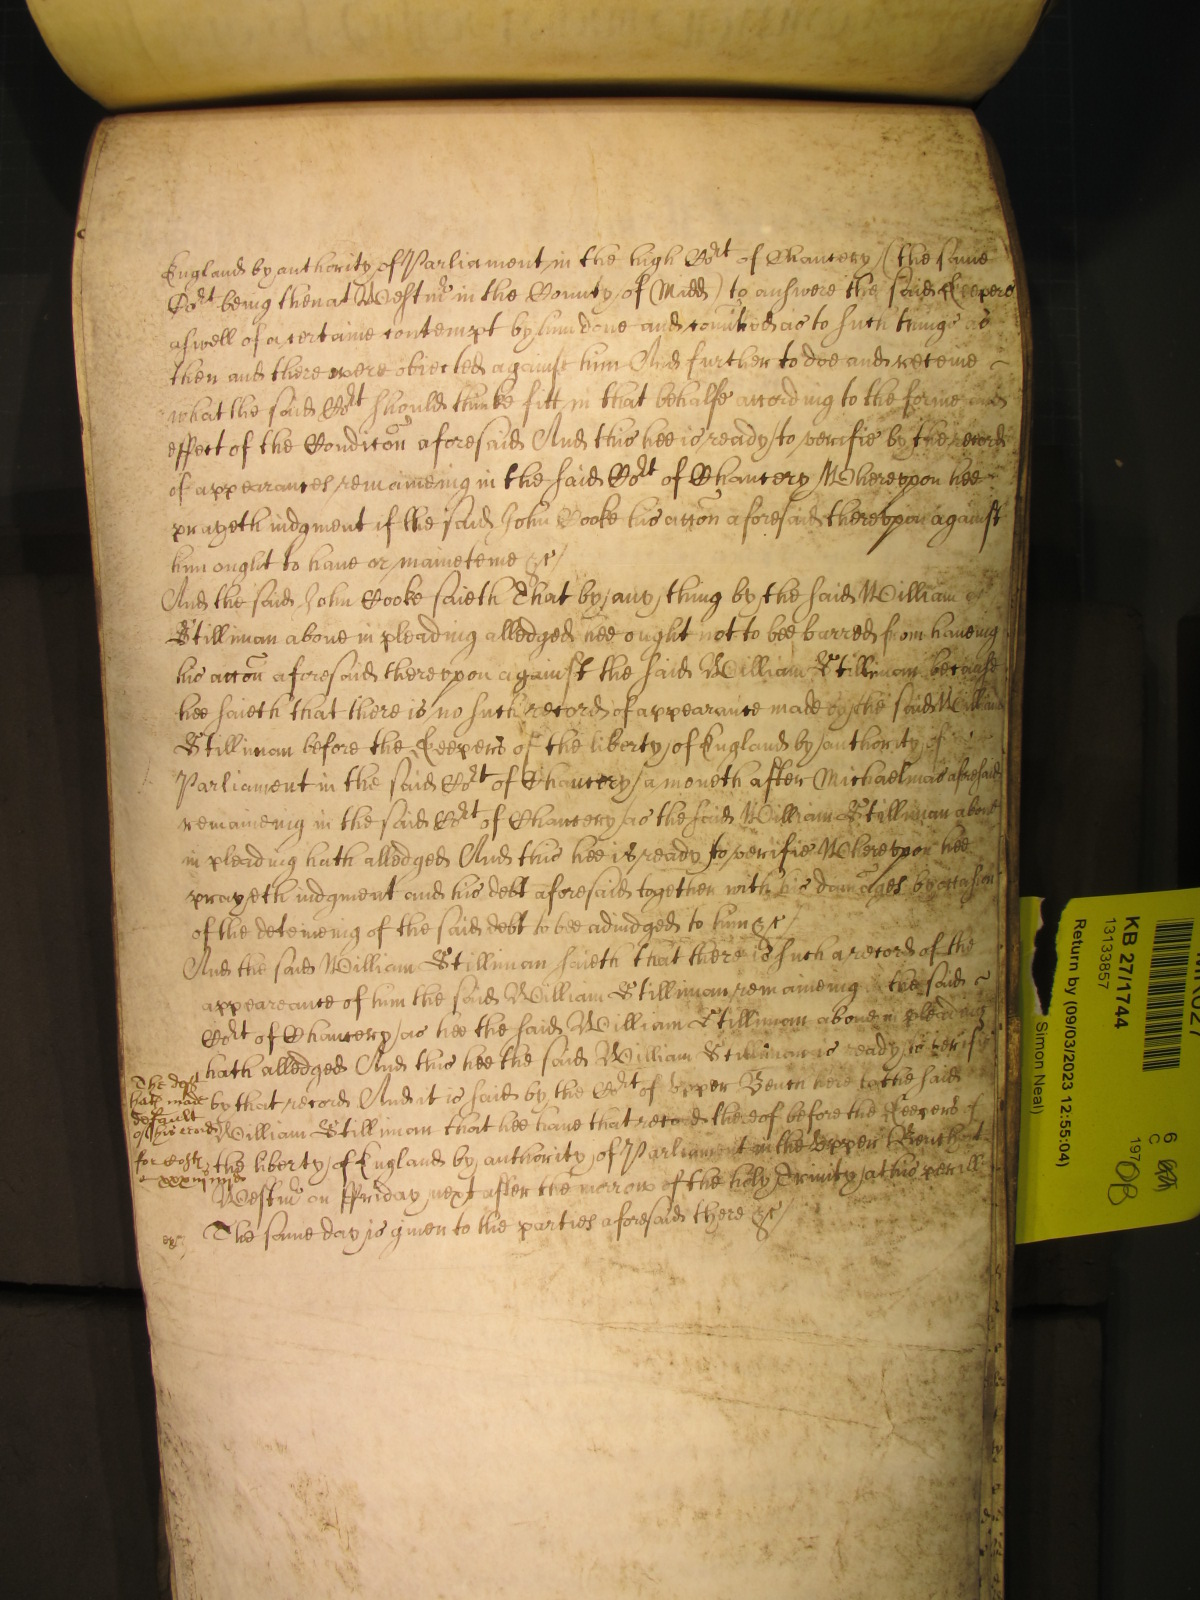 England by authority of Parliament in the high Cort of Chancery (the same
Cort being then at Westmr in the County of Midd) to answere the said Keepers
aswell of a certaine contempt by him done and comitted as to such things as
then and there were obiected against him And further to doe and receive
what the said Cort should thinke fitt in that behalfe according to the forme and
effect of the Condicon aforesaid And this hee is ready to verifie by the record
of appearances remaineing in the said Cort of Chancery Wherevpon hee
prayeth iudgment if the said John Cooke his accon aforesaid therevpon against
him ought to haue or mainteine &c/
And the said John Cooke saieth That by any thing by the said William
Stillman aboue in pleading alledged hee ought not to bee barred from haueing
his accon aforesaid therevpon against the said William Stillman because
hee saieth that there is no such record of appearance made by the said William
Stillman before the Keepers of the liberty of England by authority of
Parliament in the said Cort of Chancery a moneth after Michaelmas aforesaid
remaineing in the said Cort of Chancery as the said William Stillman aboue
in pleading hath alledged And this hee is ready to verifie Wherevpon hee
prayeth iudgment and his debt aforesaid together with his damages by occasion
of the deteineing of the said debt to bee adiudged to him &c/
And the said William Stillman saieth that there is such a record of the
appeareance of him the said William Stillman remaineing the said
Cort of Chancery as hee the said William Stillman aboue in pleading
hath alledged And this hee the said William Stillman is ready to verifie
by that record And it is said by the Cort of Vpper Bench here to the said
William Stillman that hee haue that record thereof before the Keepers of
the liberty of England by authority of Parliament in the Vpper Bench at
Westmr on Ffriday next after the morrow of the holy Trinity at his perill
The same day is giuen to the parties aforesaid there &c/
The deft
hath made
default
of his record
for costs
KB 27/1744
13133857
Return by (09/03/2023 12:55:04)
Simon Neal)
6
C
197